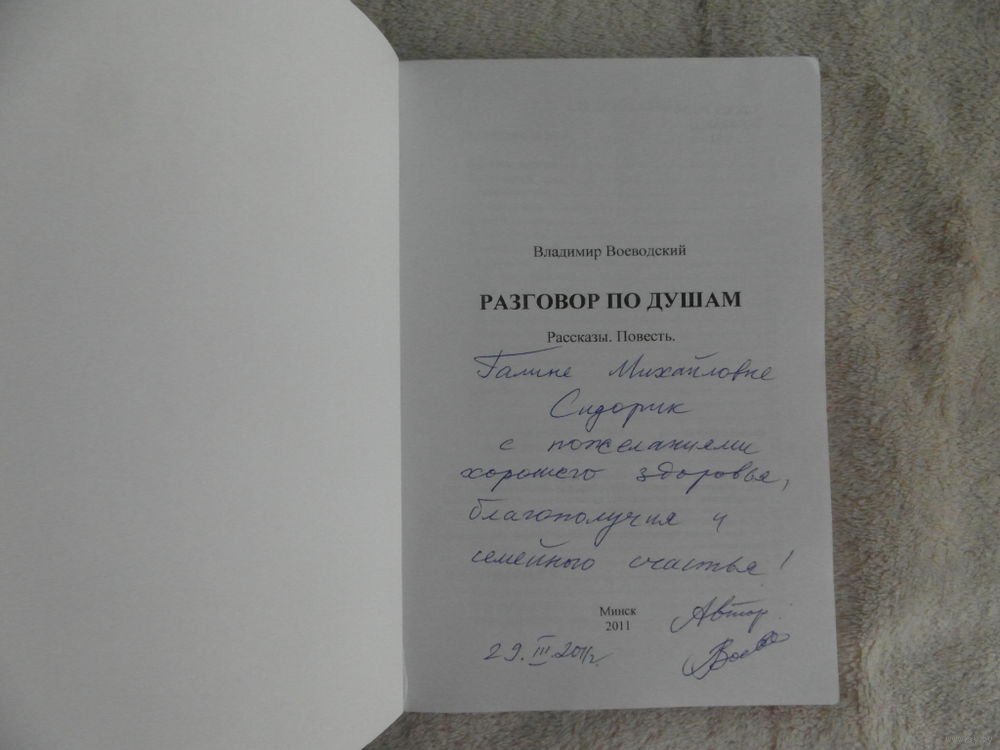 Владимир Воеводский
РАЗГОВОР ПО ДУШАМ
Рассказы. Повесть.
Галине Михайловне
Сидорик
с пожеланиями
хорошего здоровья,
благополучия и
семейного счастья!
Минск
2011
Автор
29.III.2011г.